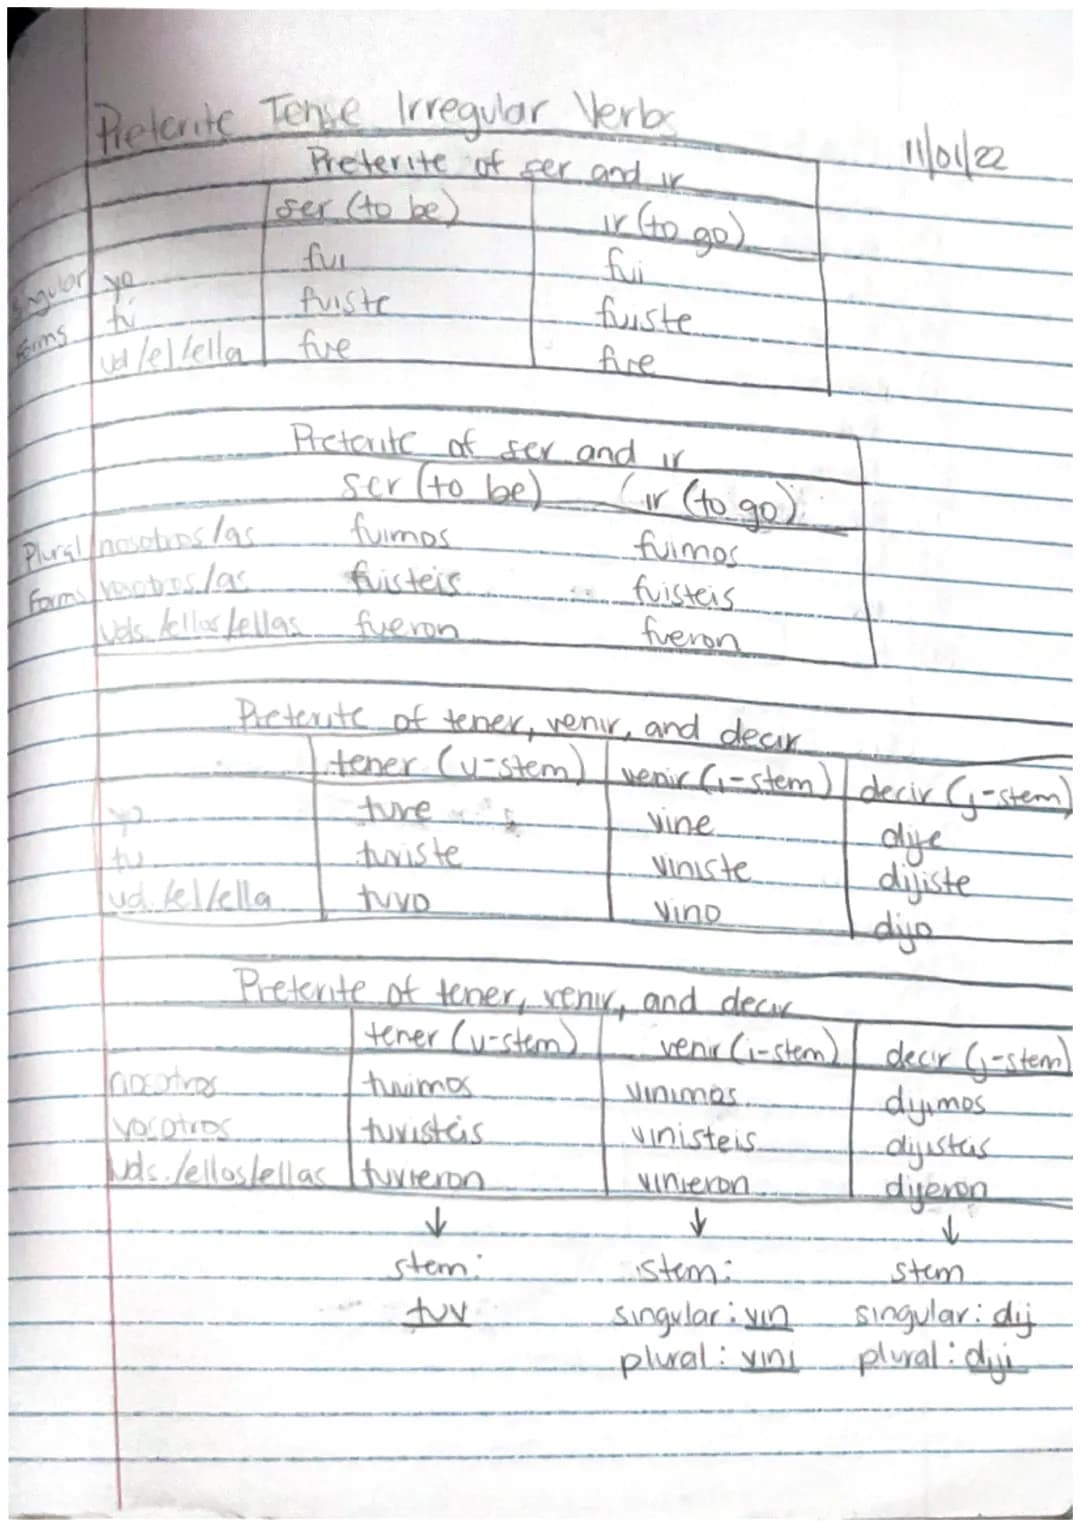 Preterite Tense Irregular Verbs
11/01/22
Preterite of ser and ir
ser (to be) ir (to go)
Singular forms
yo fui fui
tú fuiste fuiste
ud/el/ella fue fue
Preterite of ser and ir
ser (to be) ir (to go)
Plural forms
nosotros/as fuimos fuimos
vosotros/as fuisteis fuisteis
Uds./ellos/ellas fueron fueron
Preterite of tener, venir, and decir
tener (u-stem) venir (i-stem) decir (j-stem)
yo tuve vine dije
tu tuviste viniste dijiste
ud./el/ella tuvo vino dijo
Preterite of tener, venir, and decir
tener (u-stem) venir (i-stem) decir (j-stem)
nosotros tuvimos vinimos dijimos
vosotros tuvisteis vinisteis dijisteis
Uds./ellos/ellas tuvieron vinieron dijeron
↓ ↓ ↓
stem: stem: stem
tuv singular: vin singular: dij
plural: vini plural: diji